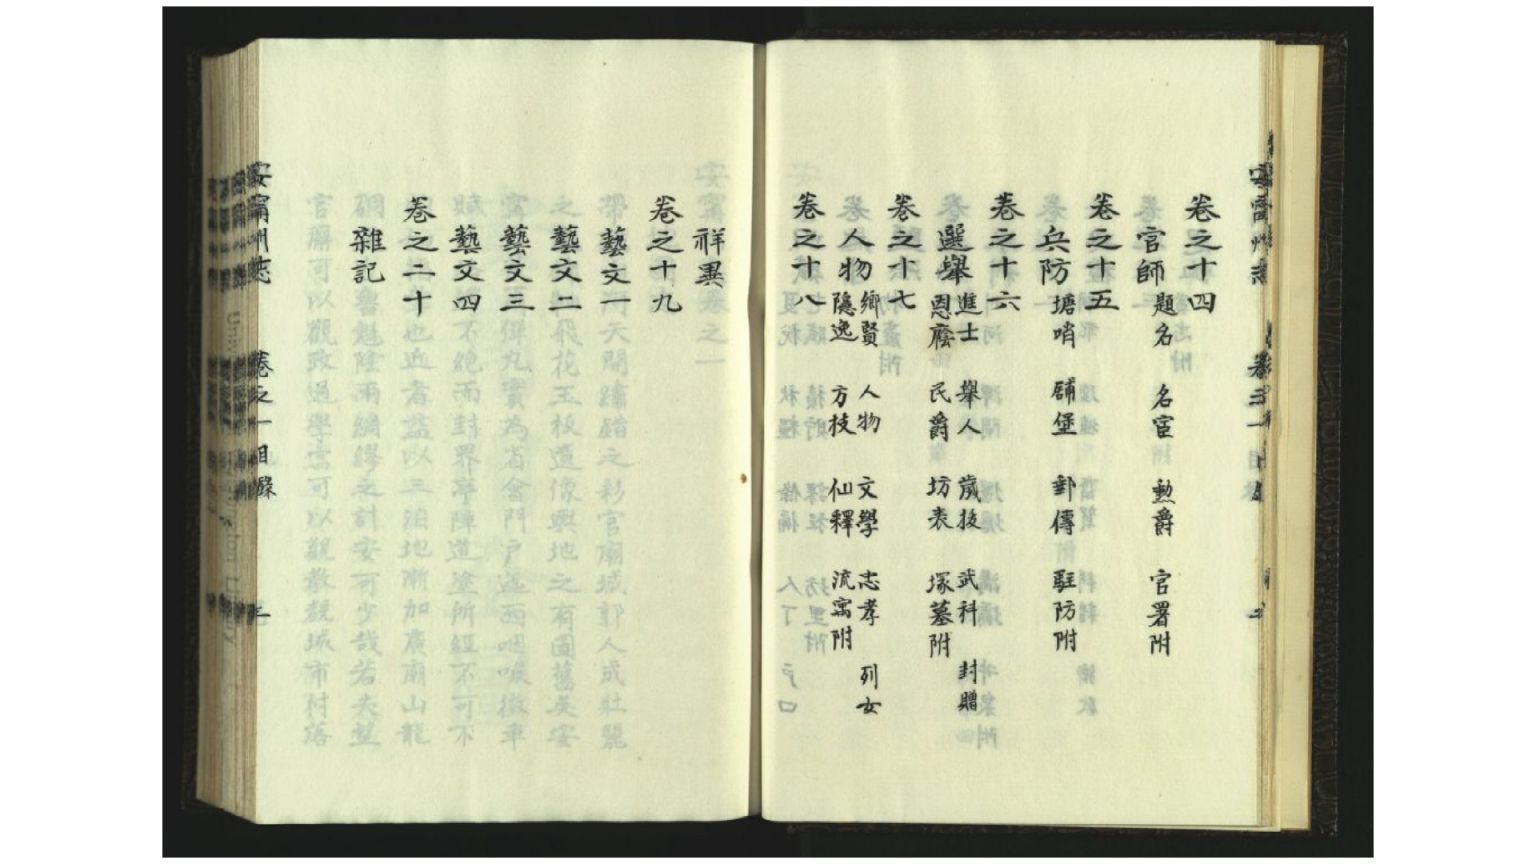 卷之十四
官師 題名 名宦 勲爵 官署附
卷之十五
兵防 塘哨 郵傳 駐防附
卷之十六
選舉 進士 舉人 武科 封贈
恩廕 民爵 坊表 塚墓附
卷之十七
人物 鄉賢 人物 文學 忠孝 列女
隱逸 方技 仙釋 流寓附
卷之十八
祥異
卷之十九
藝文一
藝文二
藝文三
藝文四
卷之二十
雜記
安寧州志 卷之一 目錄